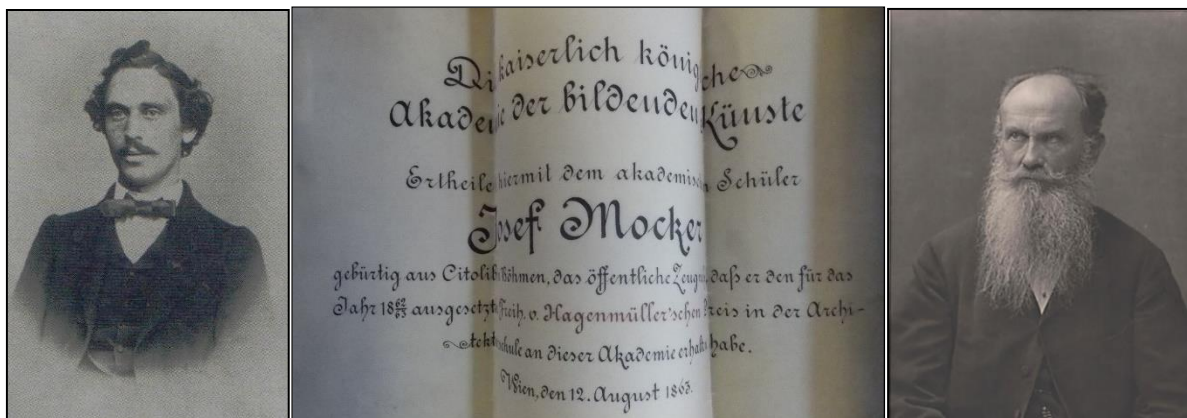 Di kaiserlich könig che
Akade ie der bildenden Künste
Ertheile hiermit dem akademisch n Schüler
Josef Mocker
gebürtig aus Citolib Böhmen, das öffentliche Zeugni, daß er den für das
Jahr 18 62/63 ausgesetzt Freih. v. Hagenmüller'schen Preis in der Archi-
tekt schule an dieser Akademie erhalt habe.
Wien, den 12. August 1863.